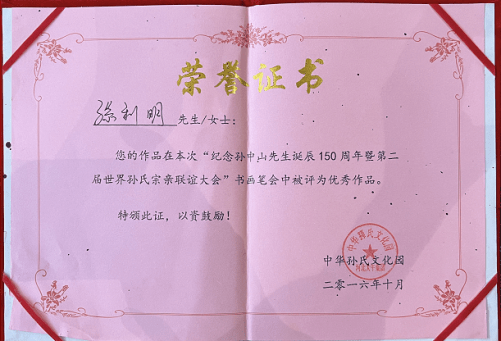 荣誉证书
孙利明 先生/女士:
您的作品在本次“纪念孙中山先生诞辰150周年暨第二
届世界孙氏宗亲联谊大会”书画笔会中被评为优秀作品。
特颁此证，以资鼓励！
中华孙氏文化园
二零一六年十月
中华孙氏文化园